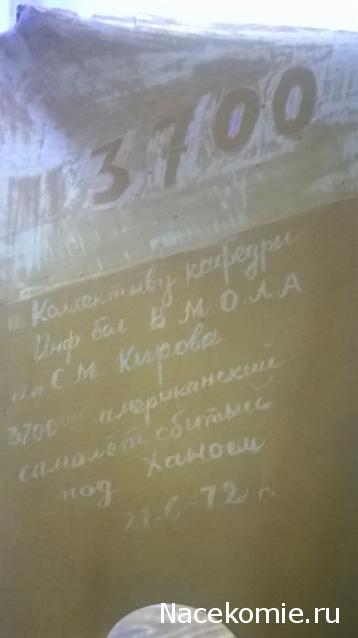 3700
Коллективу кафедры
Инф бол В.М.О.Л.А
им С.М Кирова
3700ый американский
самолёт сбитый
под Ханоем
27-6-72 г.
Nacekomie.ru